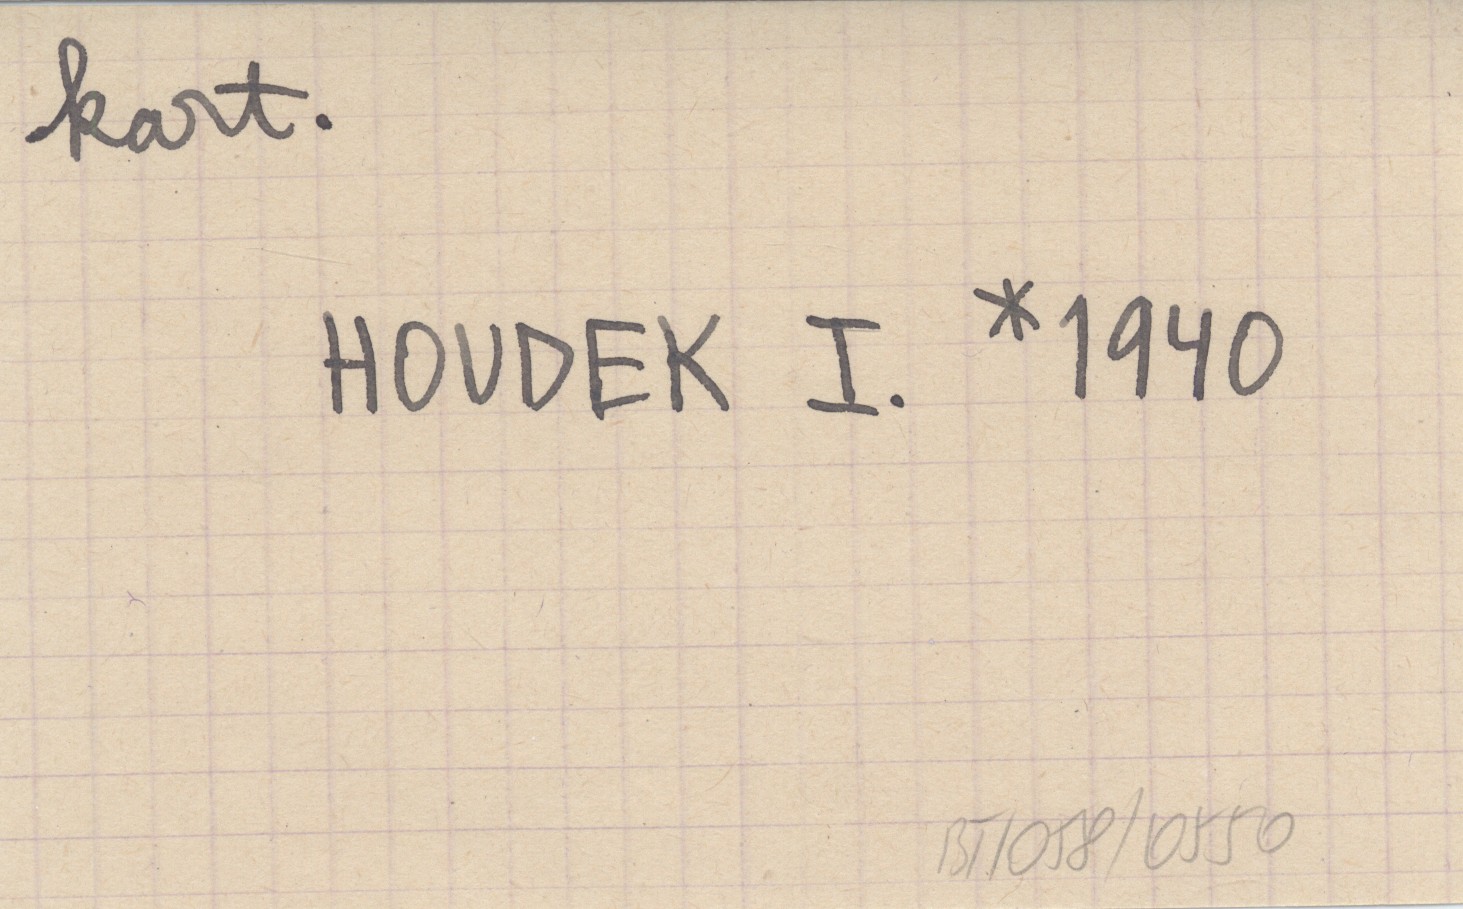 kart.
HOUDEK I. *1940
BT/058/0550